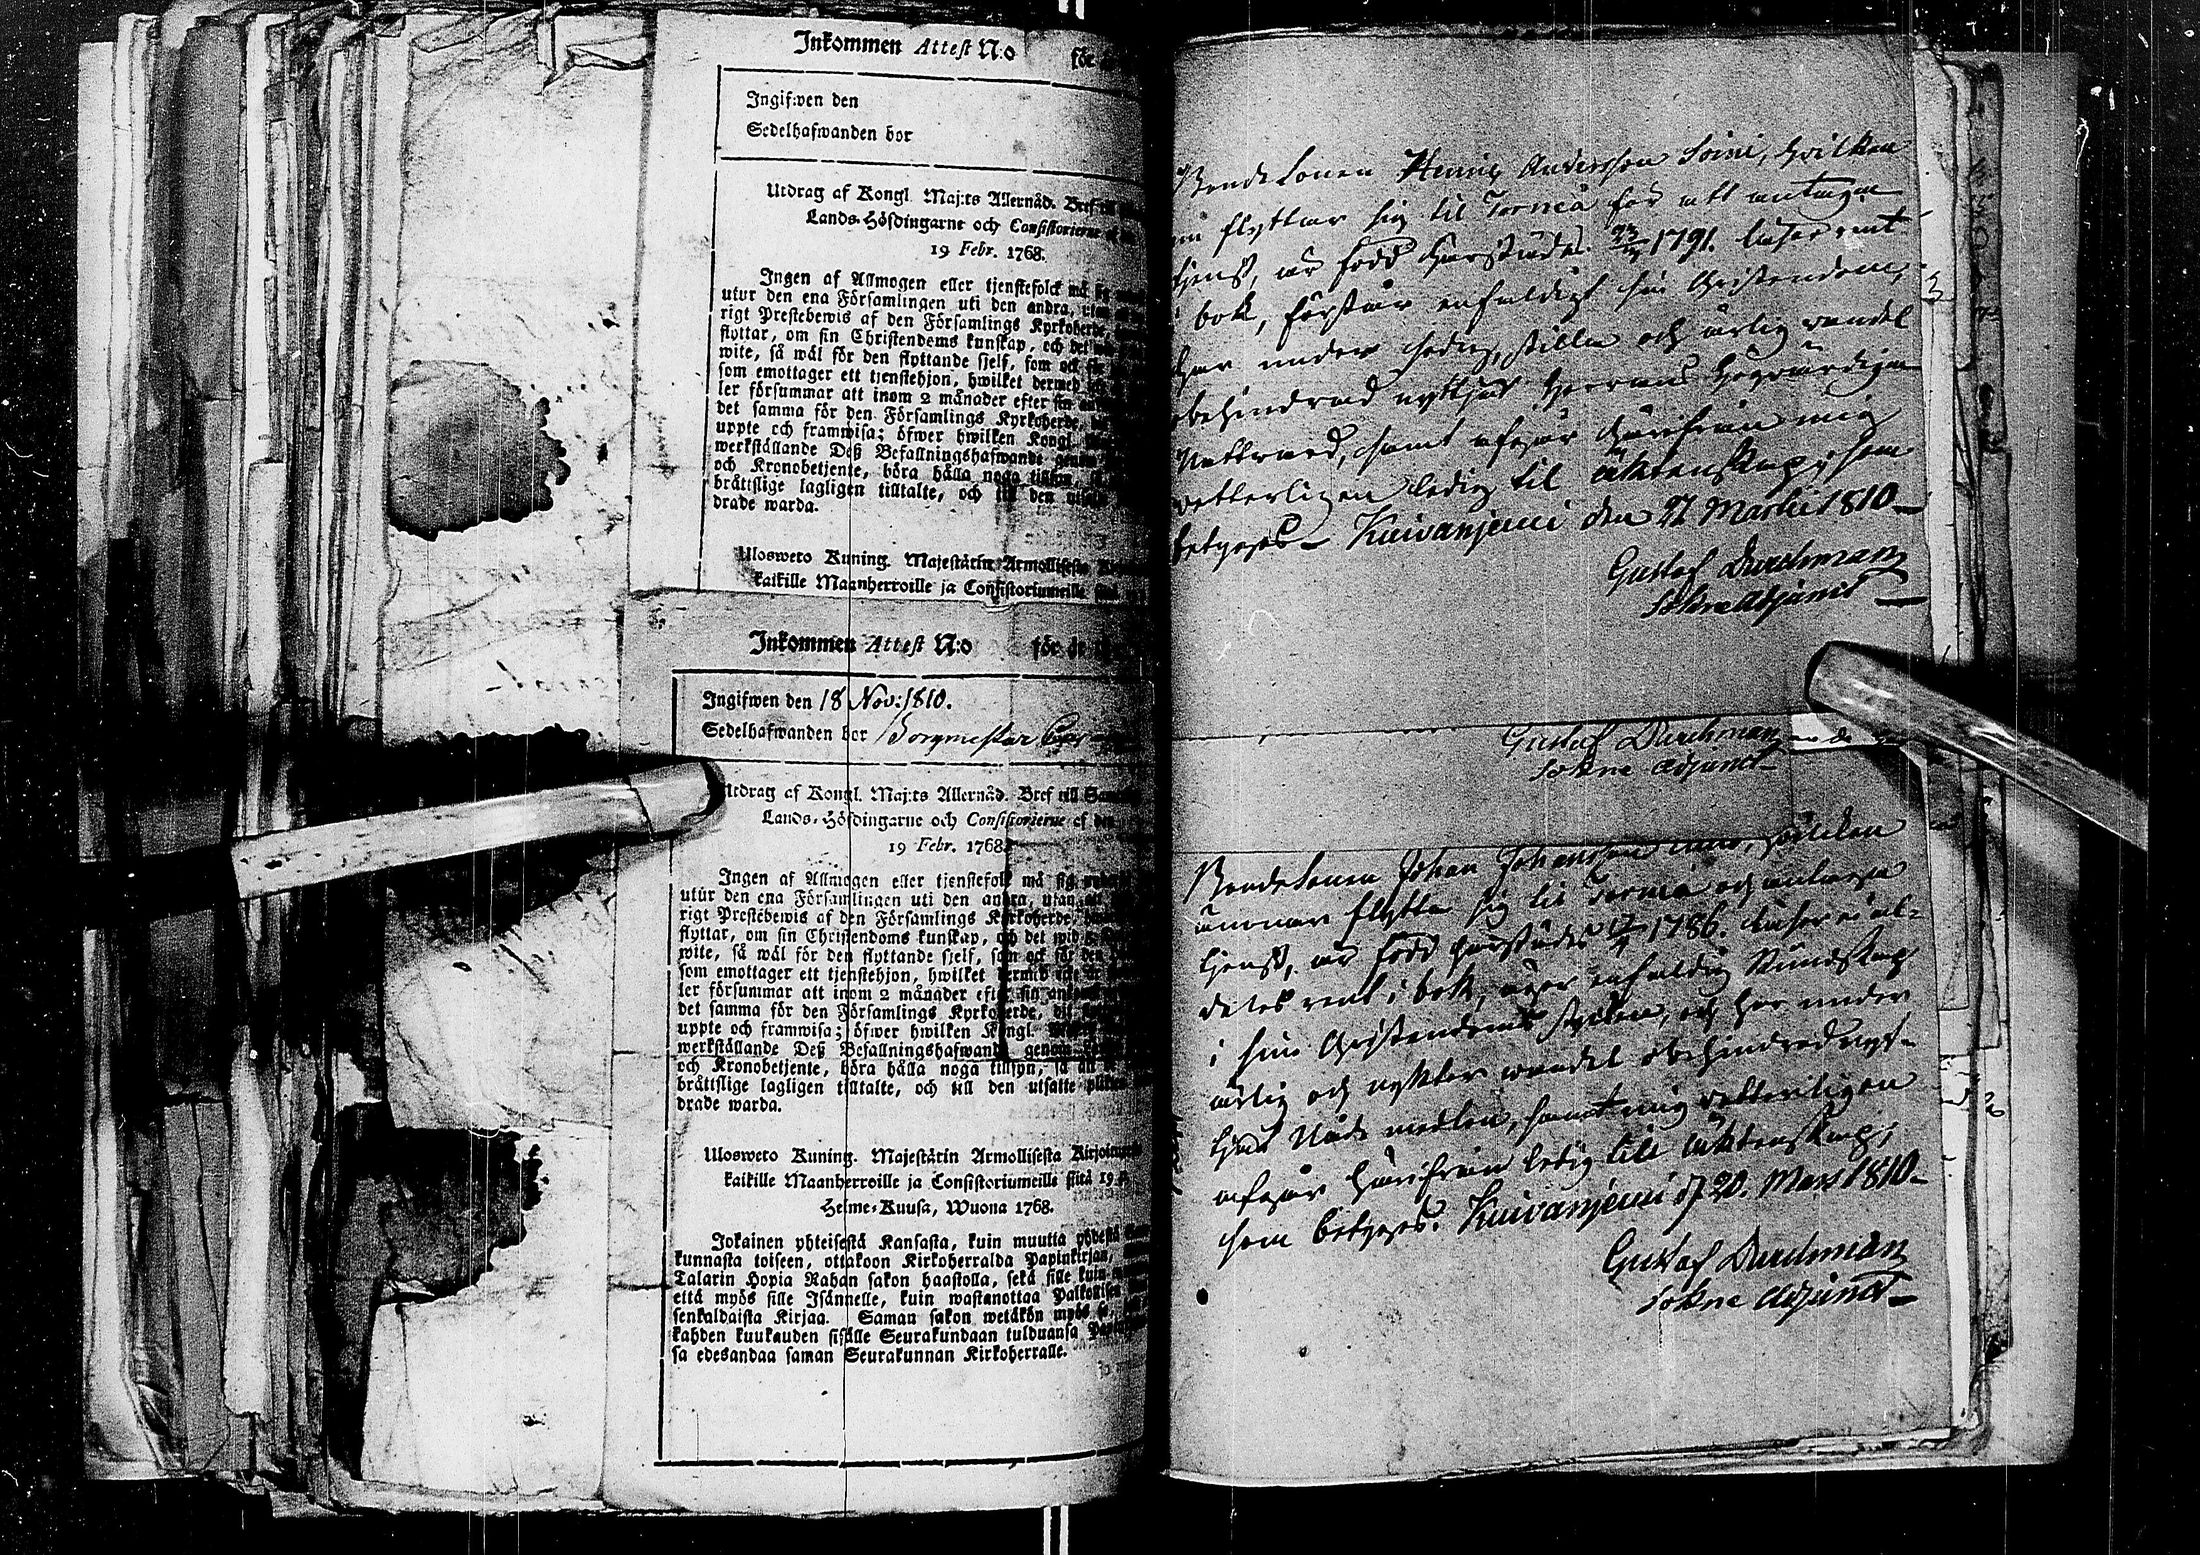 Inkommen Attest N:o för
Ingifwen den
Sedelhafwanden bor
Utdrag af Kongl. Maj:ts Allernåd. Bref
Lands-Höfdingarne och Consistorierne
19 Febr. 1768.
Ingen af Allmogen eller tjenstefolck må sig
utur den ena Församlingen uti den andra, utan
rigt Prestebewis af den Församlings Kyrkoherde,
flyttar, om sin Christendoms kunskap, och det
wite, så wäl för den flyttande sjelf, som ock för
som emottager ett tjenstehjon, hwilket dermed
ler försummar att inom 2 månader efter sin
det samma för den Församlings Kyrkoherde,
uppte och framwisa; öfwer hwilken Kongl.
werkställande Deß Befallningshafwande genom
och Kronobetjente, böra hålla noga tillsyn,
brättslige lagligen tilltalte, och till den utsatte
drade warda.
Ulosweto Kuning. Majestätin Armollisesta
kaikille Maanherroille ja Consistoriumeille
Inkommen Attest N:o för
Ingifwen den 18 Nov: 1810.
Sedelhafwanden bor Borgmestar
Utdrag af Kongl. Maj:ts Allernåd. Bref till
Lands-Höfdingarne och Consistorierne af den
19 Febr. 1768.
Ingen af Allmogen eller tjenstefolk må sig
utur den ena Församlingen uti den andra, utan
rigt Prestebewis af den Församlings Kyrkoherde,
flyttar, om sin Christendoms kunskap, och det wid
wite, så wäl för den flyttande sjelf, som ock för den
som emottager ett tjenstehjon, hwilket dermed
ler försummar att inom 2 månader efter sin
det samma för den Församlings Kyrkoherde, dit
uppte och framwisa; öfwer hwilken Kongl.
werkställande Deß Befallningshafwande genom
och Kronobetjente, böra hålla noga tillsyn, så att
brättslige lagligen tilltalte, och till den utsatte
drade warda.
Ulosweto Kuning. Majestätin Armollisesta
kaikille Maanherroille ja Consistoriumeille siitä 19
Helme-Kuusa, Wuona 1768.
Jokainen yhteisestä Kansasta, kuin muutta yhdestä
kunnasta toiseen, ottakoon Kirkoherralda Papinkirjan,
Talarin Hopia Rahan sakon haastolla, sekä sille kuin
että myös sille Isännelle, kuin wastanottaa
senkaldaista Kirjaa. Saman sakon wetäkön myös
kahden kuukauden sisälle Seurakundaan tulduansa
sa edesandaa saman Seurakunnan Kirkoherralle.
Bonde Sonen Henric Andersson Soini, hvilken
flyttar sig til Torneå för att antaga
tjenst, är född härstädes 1791. läser rent
bok, förstår enfaldigt sin Christendom,
har under sedig, stilla och ärlig vandel
obehindrad nyttjat Herrans Högvärdiga
Nattvard, samt afgår härifrån mig
vetterligen ledig til äktenskap, som
betygas Kuivanjemi den 21 Martii 1810
Gustaf Durchman
Sokne Adjunct
Gustaf Durchman
Sokne Adjunct
Bonde Sonen Johan Johansson hvilken
ämnar flytta sig til Torneå och antaga
tjenst, är född härstädes 1786. läser
deles rent i bok, äger enfaldig Kundskap
i sin Christendoms stycken, och har under
ärlig och nykter vandel obehindrad nyt-
tjat Nåde medlen, samt mig vetterligen
afgår härifrån ledig till äktenskap,
som betygas. Kuivanjemi d 20. Mars 1810
Gustaf Durchman
Sokne Adjunct